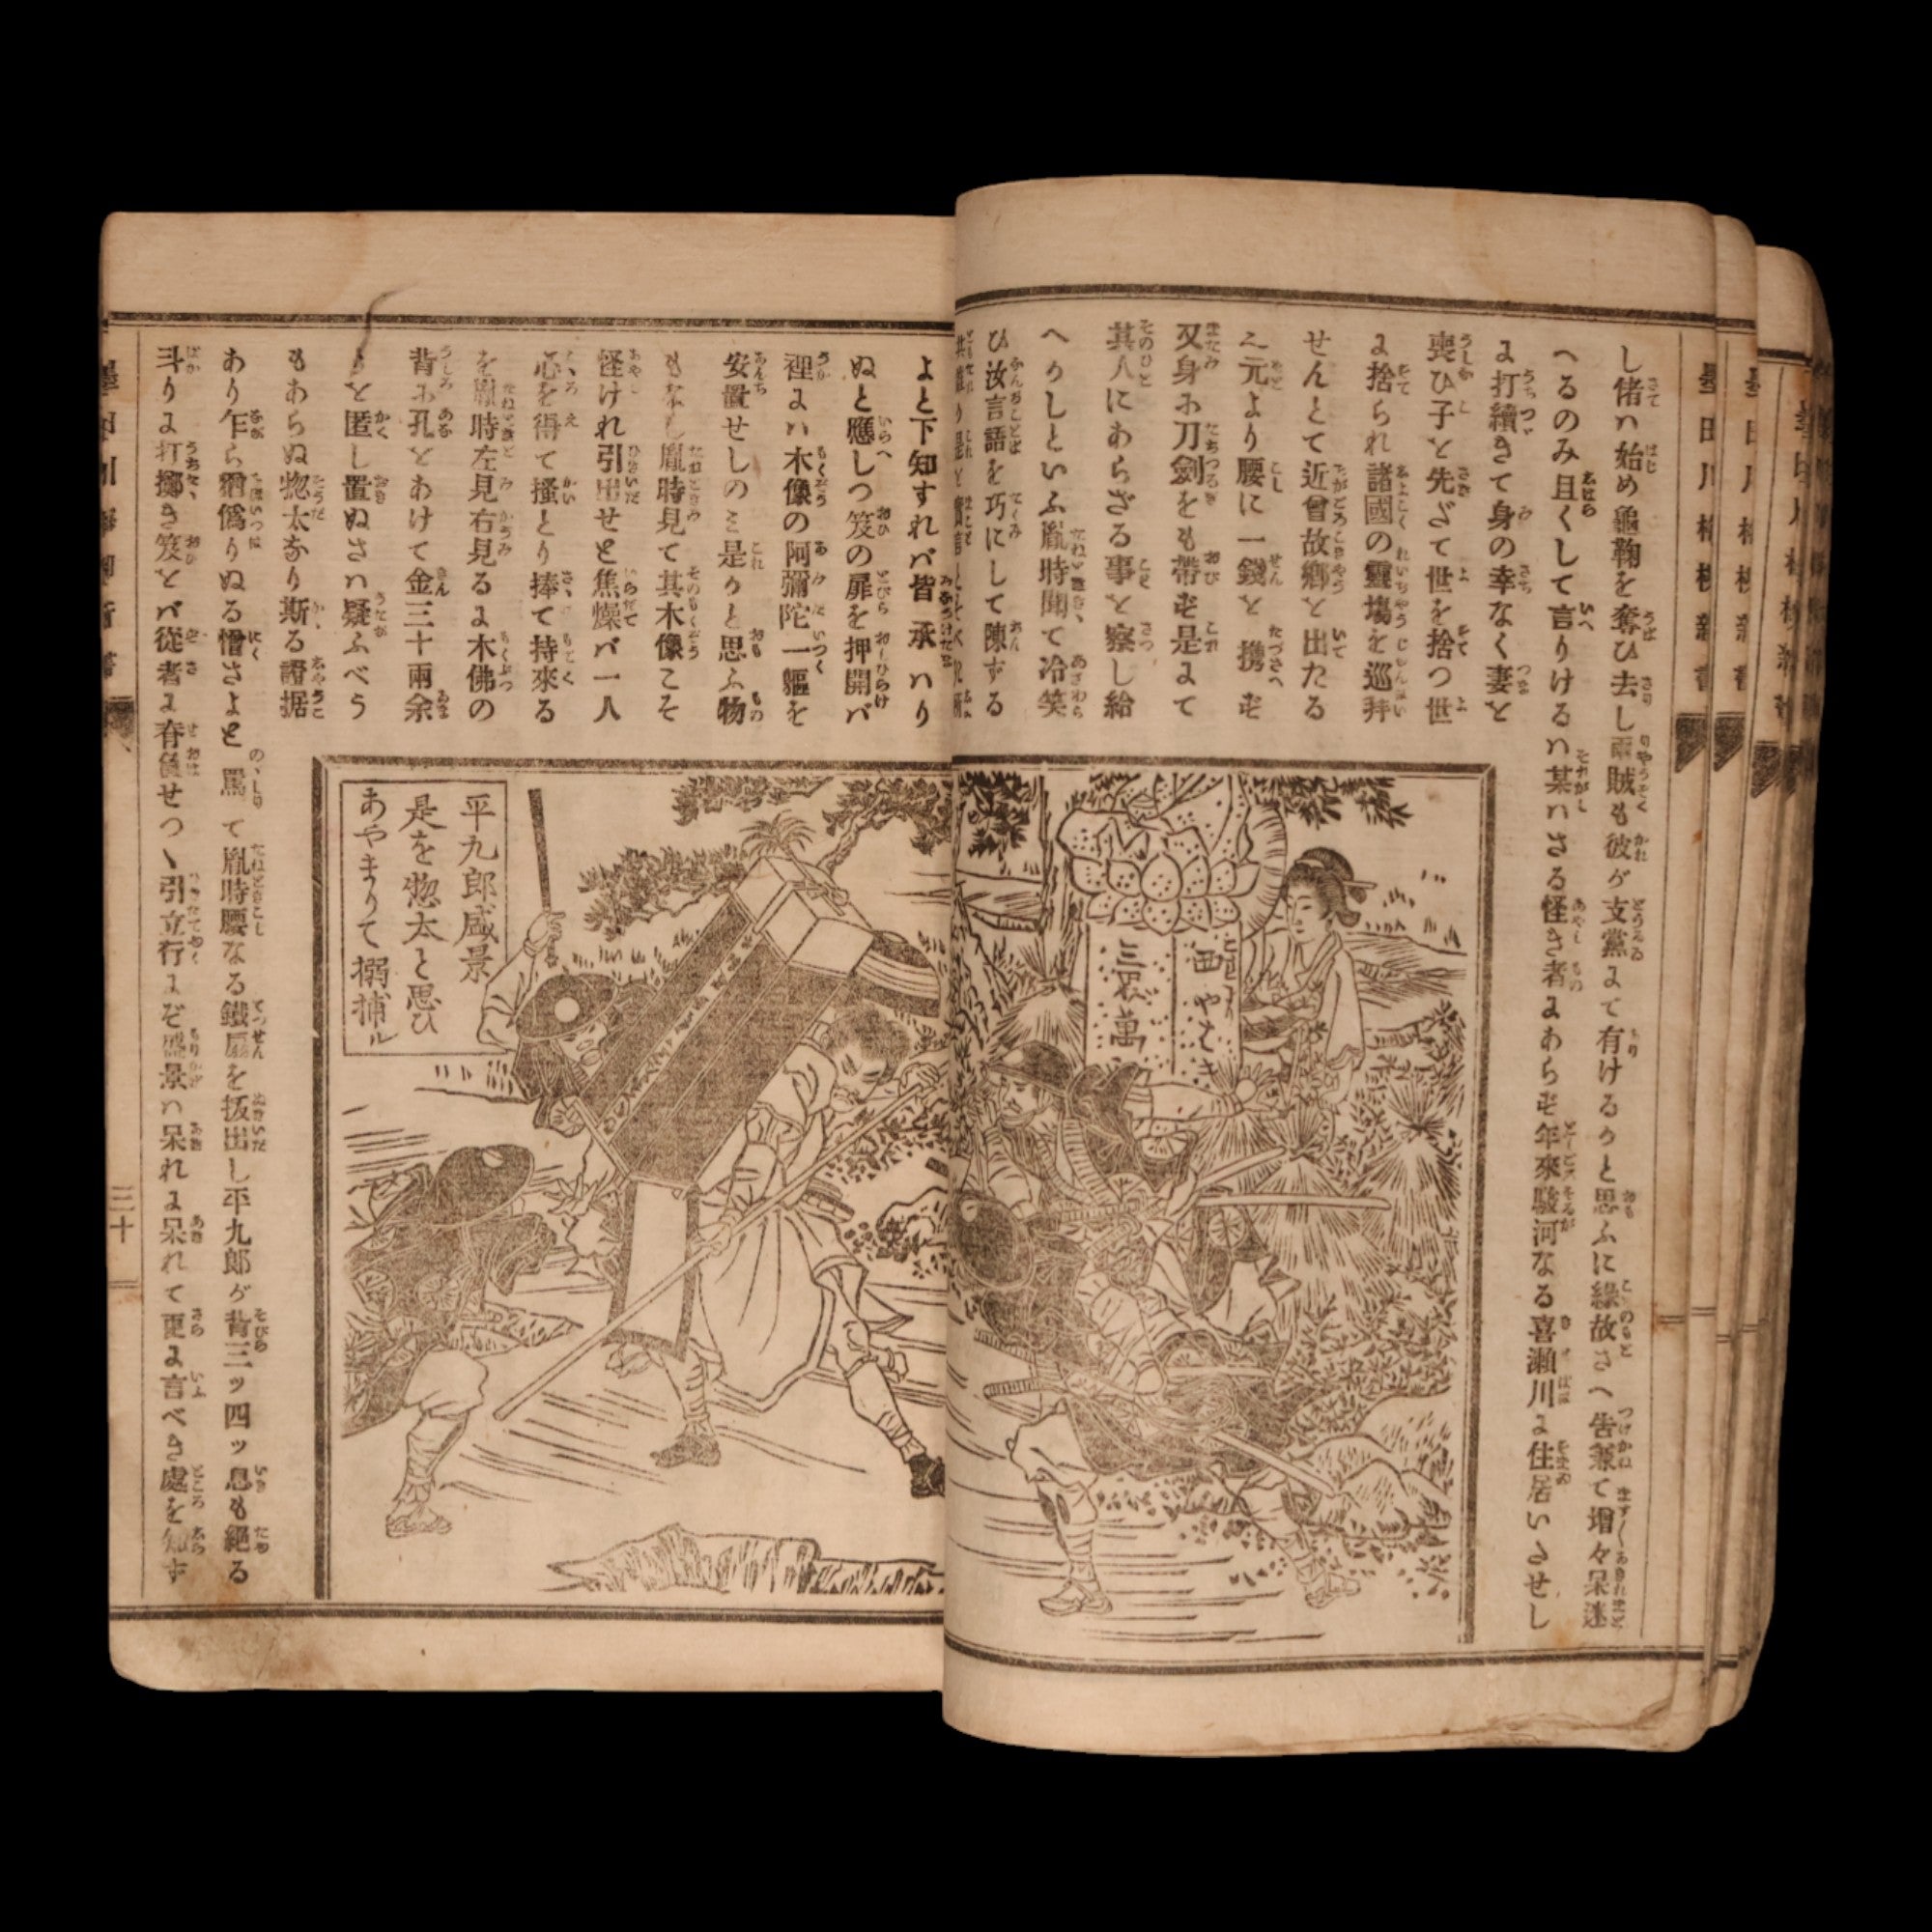 し偖ハ始め龜鞠を奪ひ去し両賊も彼が支黨よて有けるかと思ふに縁故さへ告兼て増々呆迷
へるのみ且くして言りけるハ某ハさる怪き者よあらず年來駿河なる喜瀬川よ住居いさせし
よ打續きて身の幸なく妻と
喪ひ子と先ざて世を捨つ世
よ捨られ諸國の靈塲を巡拜
せんとて近曾故郷と出たる
元より腰に一錢と携ず
又身に刀劍をも帶ず是よて
其人にあらざる事と察し給
へかしといふ胤時聞て冷笑
ひ汝言語を巧にして陳ずる
よと下知すれバ皆承ハり
ぬと應しつ笈の扉を押開バ
裡よハ木像の阿彌陀一軀を
安置せしのミ是かと思ふ物
もなし胤時見て其木像こそ
怪けれ引出せと焦燥バ一人
心を得て搔とり捧て持來る
を胤時左見右見るよ木佛の
背に孔とあけて金三十兩余
と匿し置ぬさハ疑ふべう
もあらぬ惣太なり斯る證据
あり乍ら猶僞りぬる憎さよと罵て胤時腰なる鐵扇を抜出し平九郎が背三ッ四ッ息も絕る
斗りよ打擲き笈とバ從者よ脊負せつゝ引立行よぞ盛景ハ呆れよ呆れて更よ言べき處を知ず
平九郎盛景
是を惣太と思ひ
あやまりて搦捕ル
三十